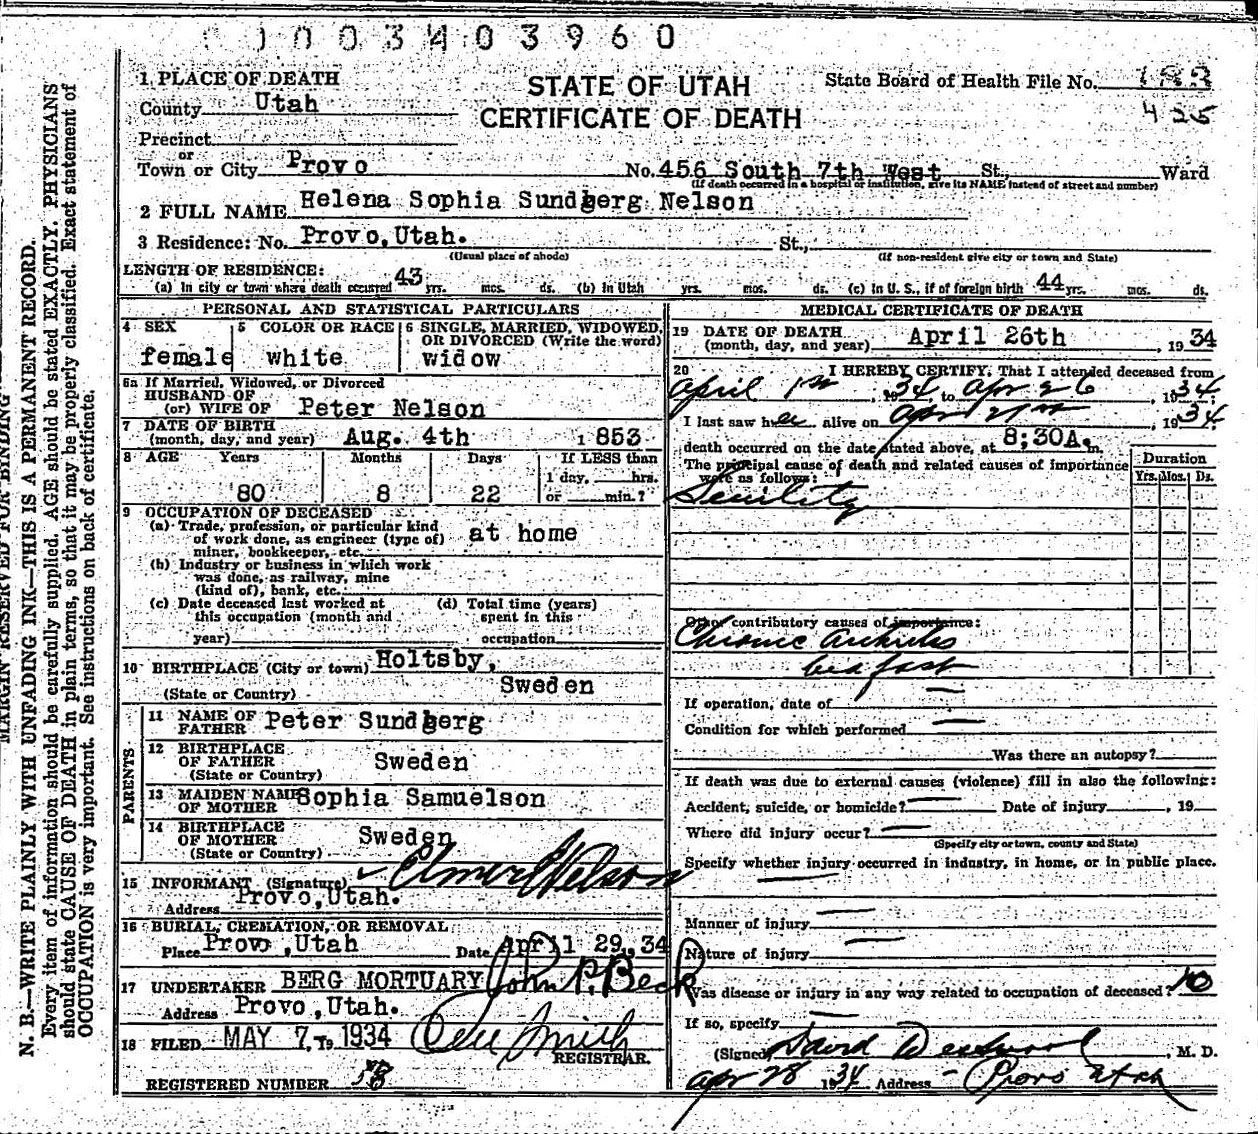 1003403960
1 PLACE OF DEATH
STATE OF UTAH
State Board of Health File No. 183
County Utah
CERTIFICATE OF DEATH
425
Precinct
or
Town or City Provo No. 456 South 7th West St., Ward
(If death occurred in a hospital or institution, give its NAME instead of street and number)
2 FULL NAME Helena Sophia Sundberg Nelson
3 Residence: No. Provo, Utah. St.,
(Usual place of abode) (If non-resident give city or town and State)
LENGTH OF RESIDENCE:
(a) In city or town where death occurred 43 yrs. mos. ds. (b) In Utah yrs. mos. ds. (c) In U. S., if of foreign birth 44 yrs. mos. ds.
PERSONAL AND STATISTICAL PARTICULARS
4 SEX female
5 COLOR OR RACE white
6 SINGLE, MARRIED, WIDOWED, OR DIVORCED (Write the word) widow
6a If Married, Widowed, or Divorced
HUSBAND OF
(or) WIFE OF Peter Nelson
7 DATE OF BIRTH
(month, day, and year) Aug. 4th 1853
8 AGE Years Months Days If LESS than
1 day, hrs.
80 8 22 or min.?
9 OCCUPATION OF DECEASED
(a) Trade, profession, or particular kind
of work done, as engineer (type of) at home
miner, bookkeeper, etc.
(b) Industry or business in which work
was done, as railway, mine
(kind of), bank, etc.
(c) Date deceased last worked at
this occupation (month and
year)
(d) Total time (years)
spent in this
occupation
10 BIRTHPLACE (City or town) Holtsby,
(State or Country) Sweden
PARENTS
11 NAME OF
FATHER Peter Sundberg
12 BIRTHPLACE
OF FATHER Sweden
(State or Country)
13 MAIDEN NAME
OF MOTHER Sophia Samuelson
14 BIRTHPLACE
OF MOTHER Sweden
(State or Country)
15 INFORMANT (Signature) Elmer Nelson
Address Provo, Utah.
16 BURIAL, CREMATION, OR REMOVAL
Place Provo, Utah Date April 29, 34
17 UNDERTAKER BERG MORTUARY John P. Beck
Address Provo, Utah.
18 FILED MAY 7, 1934 Smith
REGISTRAR.
REGISTERED NUMBER 58
MEDICAL CERTIFICATE OF DEATH
19 DATE OF DEATH
(month, day, and year) April 26th, 1934
20 I HEREBY CERTIFY, That I attended deceased from
April 1st, 34, to Apr 26, 1934;
I last saw her alive on Apr 21st, 1934
death occurred on the date stated above, at 8;30A.m.
The principal cause of death and related causes of importance
were as follows:
Duration
Yrs. Mos. Ds.
Senility
Other contributory causes of importance:
Chronic Arthritis
bed fast
If operation, date of —
Condition for which performed —
Was there an autopsy?
If death was due to external causes (violence) fill in also the following:
Accident, suicide, or homicide? — Date of injury , 19
Where did injury occur? —
(Specify city or town, county and State)
Specify whether injury occurred in industry, in home, or in public place.
—
Manner of injury —
Nature of injury —
Was disease or injury in any way related to occupation of deceased? no
If so, specify —
(Signed) David Westwood, M. D.
Apr 28 1934 Address - Provo Utah
MARGIN RESERVED FOR BINDING
N. B.—WRITE PLAINLY WITH UNFADING INK—THIS IS A PERMANENT RECORD.
Every item of information should be carefully supplied. AGE should be stated EXACTLY. PHYSICIANS
should state CAUSE OF DEATH in plain terms, so that it may be properly classified. Exact statement of
OCCUPATION is very important. See instructions on back of certificate.